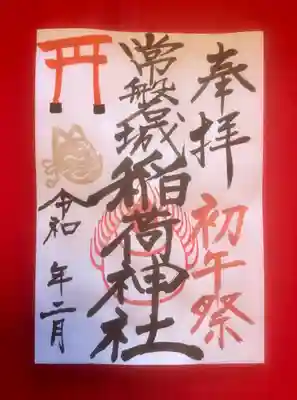 奉拝
初午祭
常盤城
稲荷神社
令和 年二月